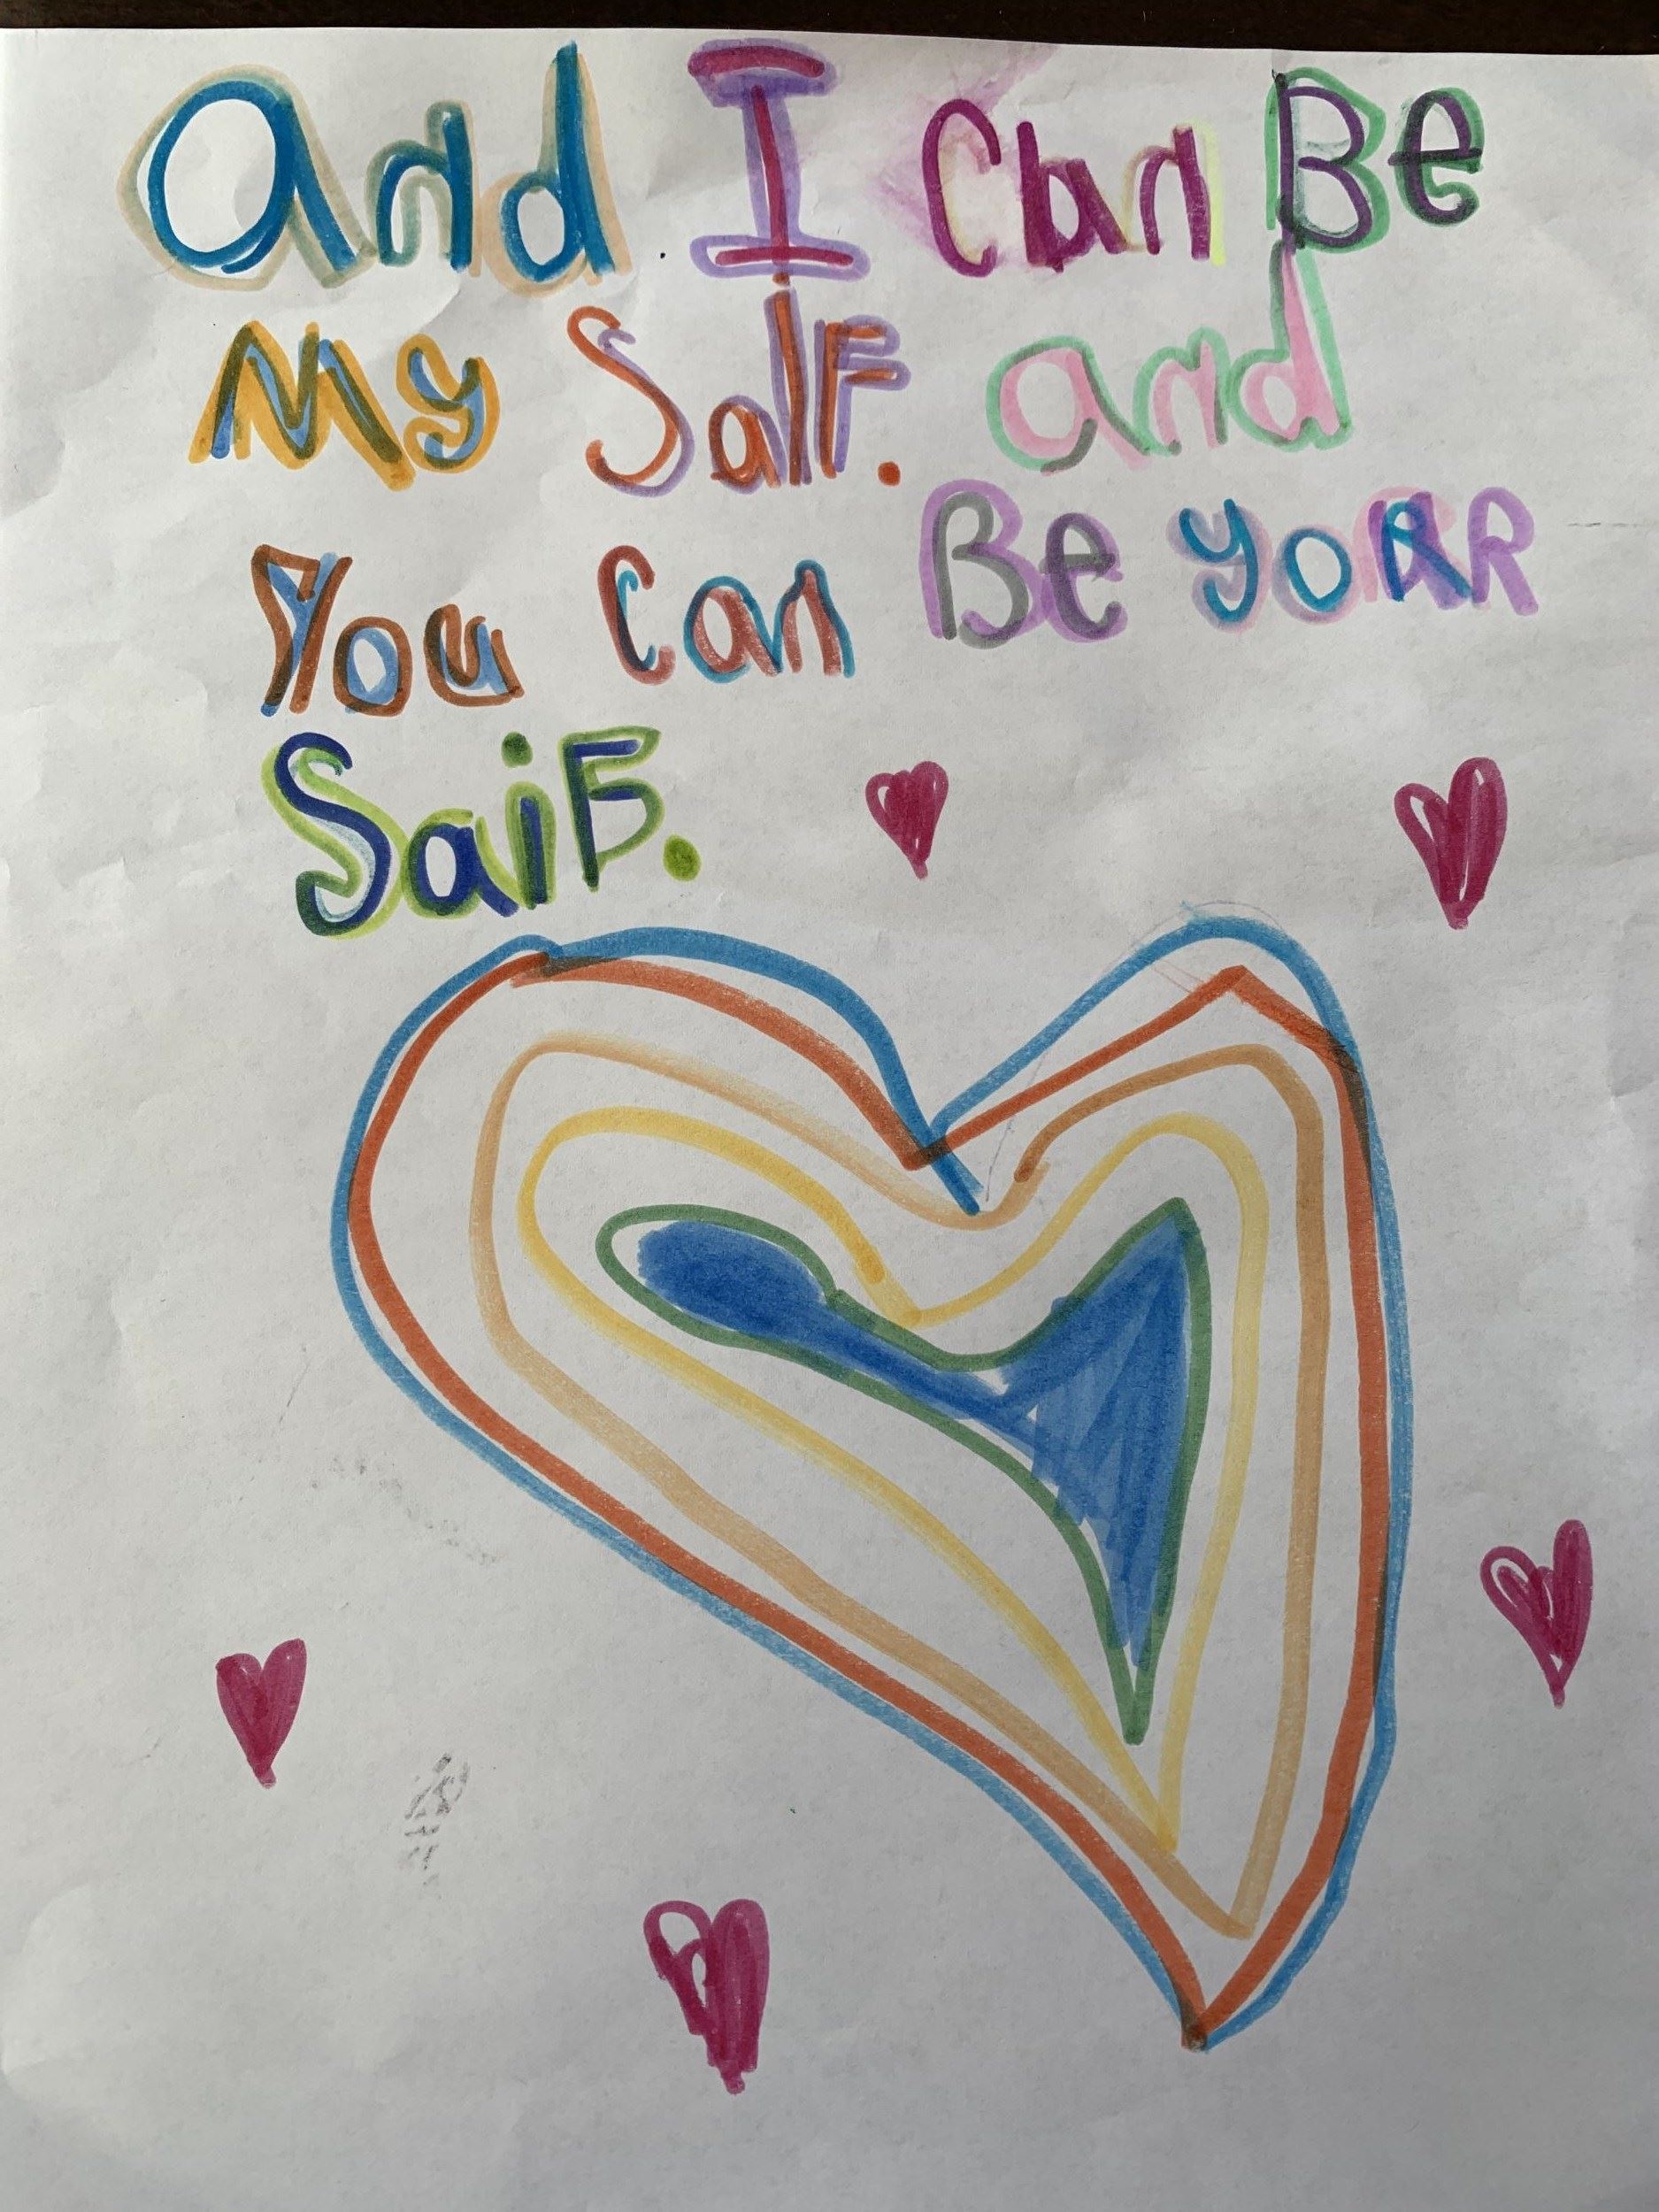 and I Can Be
My SalF. and
You Can Be yoRR
SaiF.